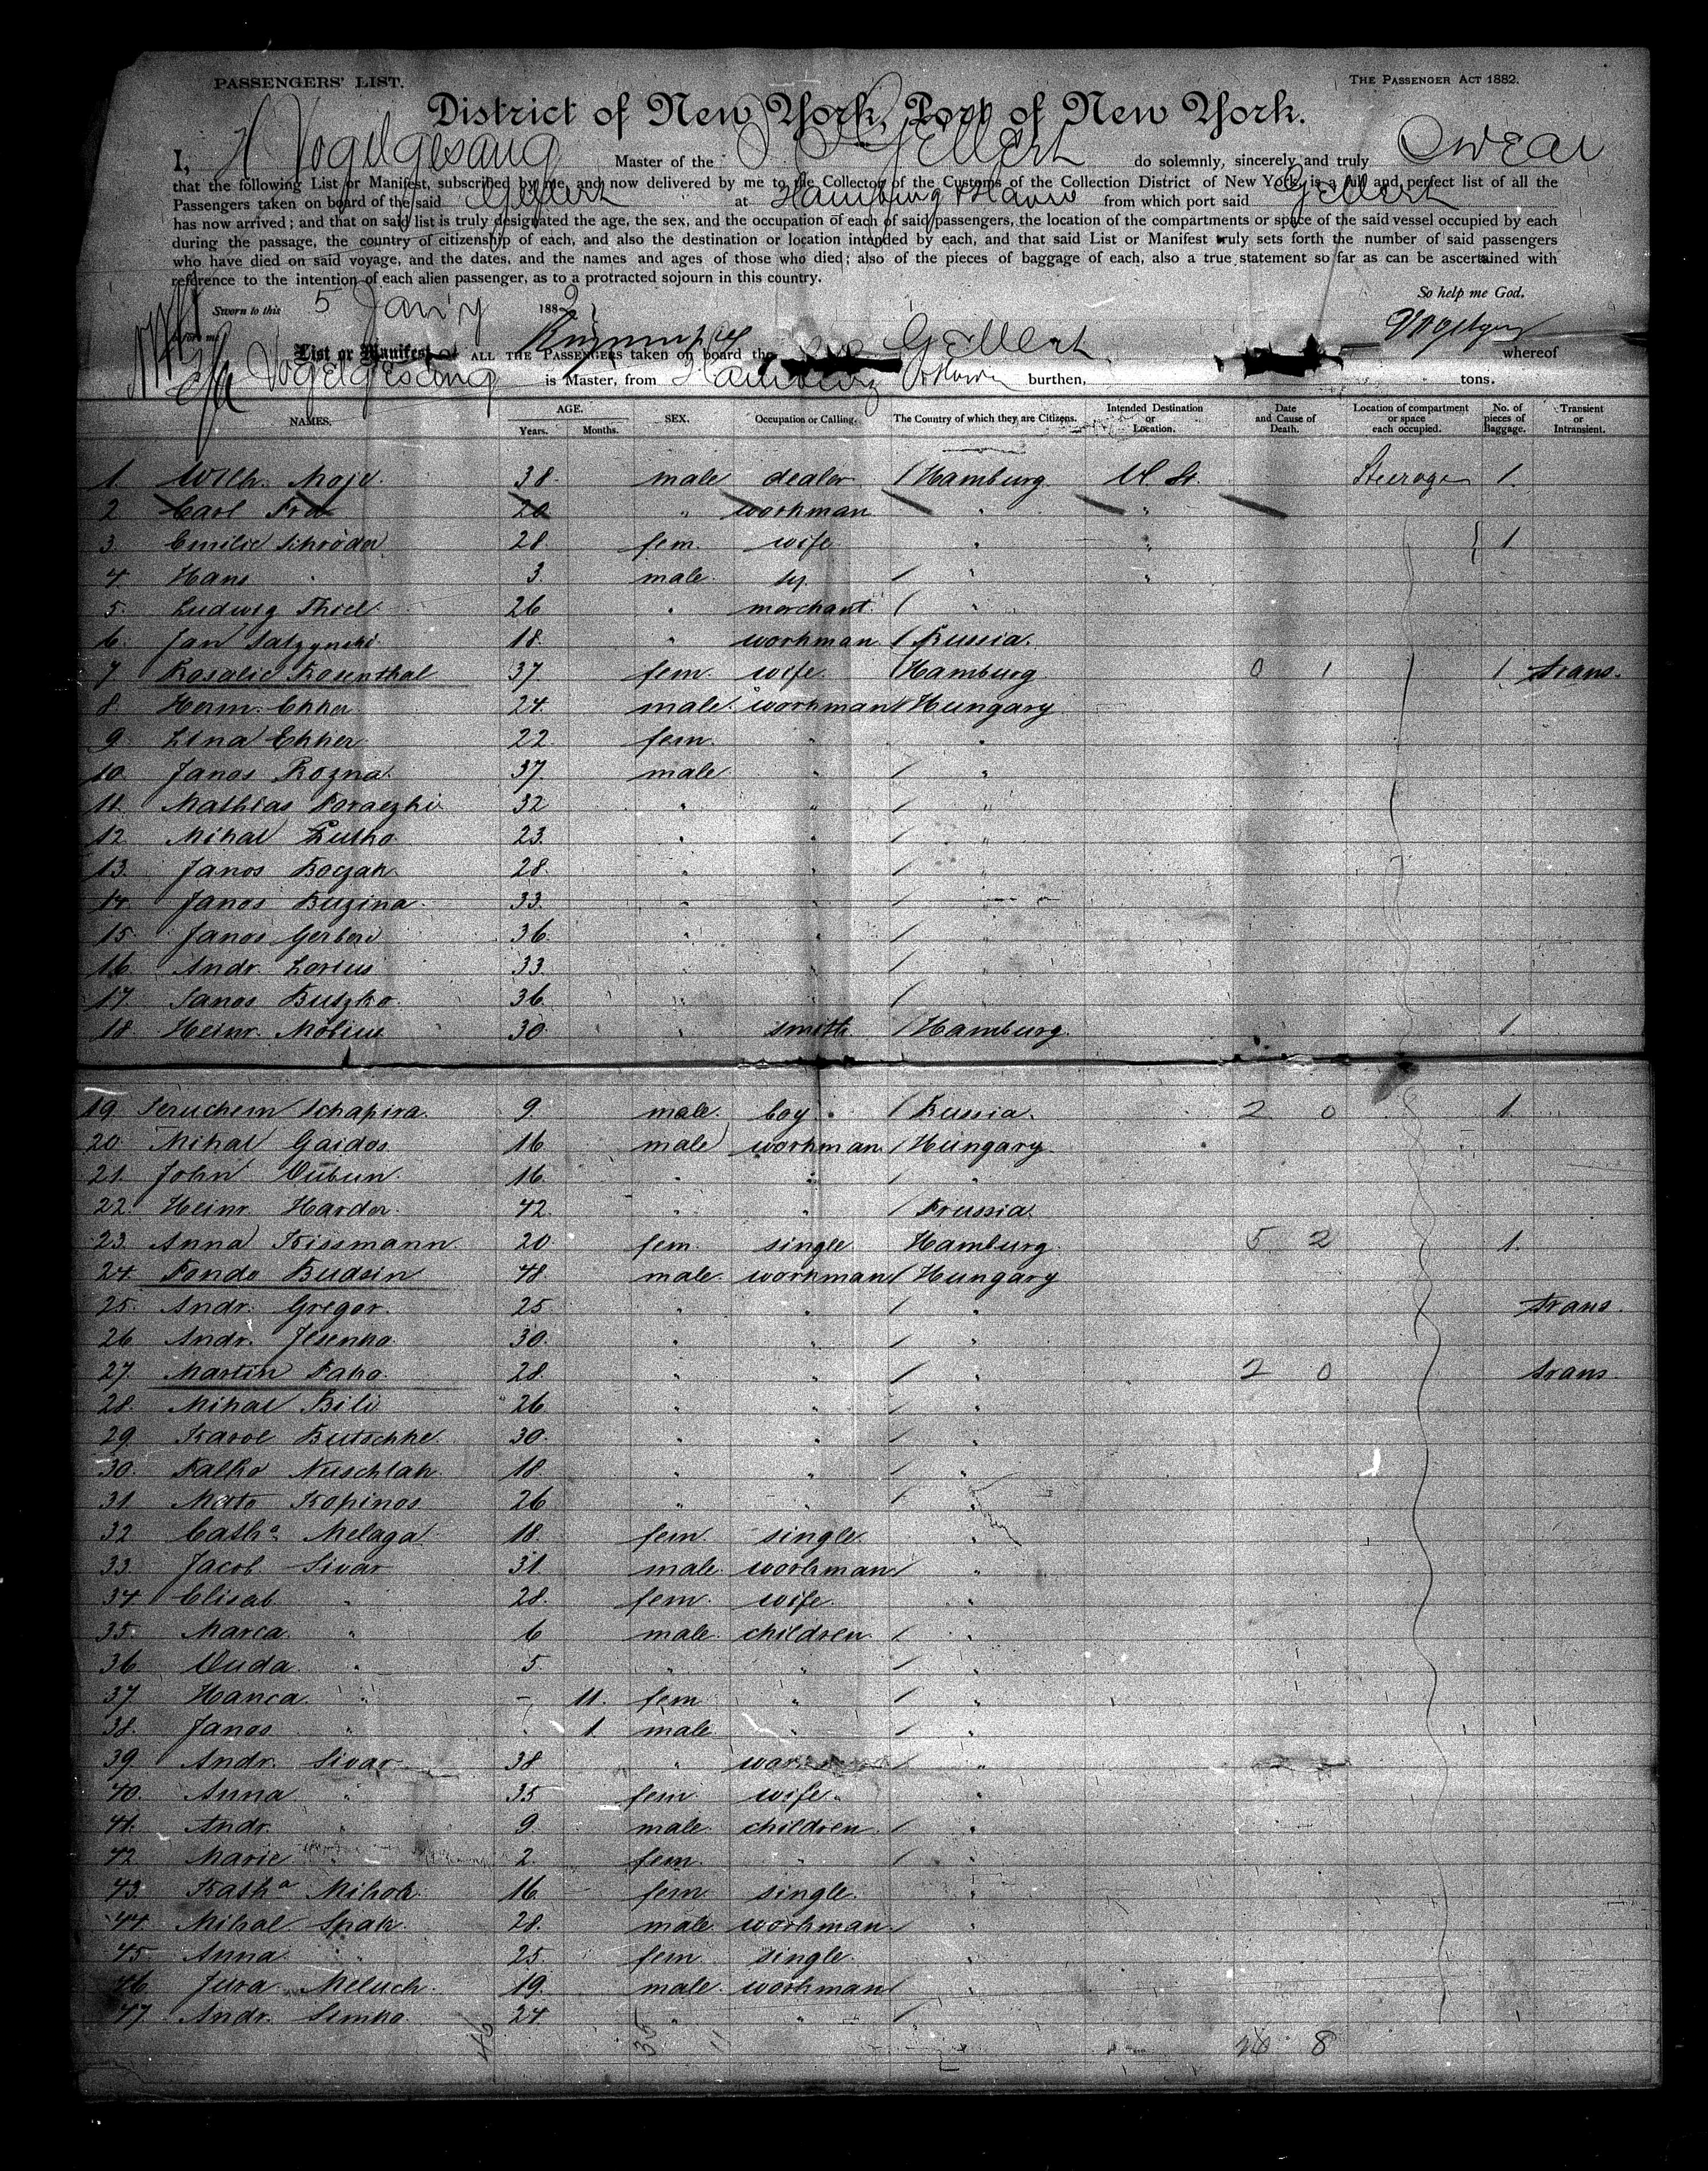 PASSENGERS' LIST.
THE PASSENGER ACT 1882.
District of New York, Port of New York.
I, H Vogelgesang Master of the S S Gellert do solemnly, sincerely and truly Swear
that the following List or Manifest, subscribed by me, and now delivered by me to the Collector of the Customs of the Collection District of New York, is a full and perfect list of all the
Passengers taken on board of the said Gellert at Hamburg & Havre from which port said Gellert
has now arrived; and that on said list is truly designated the age, the sex, and the occupation of each of said passengers, the location of the compartments or space of the said vessel occupied by each
during the passage, the country of citizenship of each, and also the destination or location intended by each, and that said List or Manifest truly sets forth the number of said passengers
who have died on said voyage, and the dates, and the names and ages of those who died; also of the pieces of baggage of each, also a true statement so far as can be ascertained with
reference to the intention of each alien passenger, as to a protracted sojourn in this country.
So help me God.
Sworn to this 5 Jan'y 188
before me
List or Manifest of ALL THE PASSENGERS taken on board the Gellert whereof
Vogelgesang is Master, from Hamburg & Havre burthen, tons.
NAMES. AGE. Years. Months. SEX. Occupation or Calling. The Country of which they are Citizens. Intended Destination or Location. Date and Cause of Death. Location of compartment or space each occupied. No. of pieces of Baggage. Transient or Intransient.
1. Wilh. Moje. 38. male dealer / Hamburg U. St. Steerage 1.
2 Carl 20 " workman " "
3. Emilie Schröder 28. fem. wife " " 1
4 Hans " 3 male. sy. / " "
5. Ludwig Thiel 26 " merchant. / "
6. Jan Satzynski 18. " workman / Russia.
7 Rosalie Rosenthal 37 fem. wife Hamburg 0 1 1 trans.
8. Herm. Ekker 24. male. workman / Hungary
9. Lina Ekker 22. fem. " "
10. Janos Rozna. 37. male " / "
11. Mathias 32 " " / "
12. Mihal 23. " " / "
13. Janos Boczak 28. " " / "
14. Janos Buzina. 33. " " /
15. Janos Gerberi 36. " " / "
16. Andr. 33. " " /
17. Janos Buszko. 36. " " /
18. Heinr. Möbius 30. " smith / Hamburg. 1.
19. Schapira. 9. male. boy. / Russia. 2 0 1.
20. Mihal Gaidos 16. male workman / Hungary.
21. John 16. " " / "
22. Heinr. Harder. 42. " " / Prussia.
23. Anna Kissmann. 20. fem. single Hamburg. 5 2 1.
24. Budsin 48. male. workman / Hungary
25. Andr. Gregor. 25 " " / " trans.
26. Andr. Jesenko. 30. " " / "
27. Martin 28. " " / " 2 0 trans.
28. Mihal Bili 26 " " / "
29. Karol Butschke. 30. " " / "
30. Palko Nuschlak. 18. " " / "
31. Mato Kopinos 26 " " / "
32. Cath.a Melaga 18. fem. single. "
33. Jacob Sivar 31. male. workman / "
34. Elisab. " 28. fem. wife. "
35. Marca. " 6 male. children. / "
36. Duda " 5. " " / "
37. Hanca. " - 11. fem. " / "
38. Janos " 1. male. " / "
39. Andr. Sivar. 38 " / "
40. Anna " 35 fem. wife. "
41. Andr. " 9. male. children. / "
42. Marie " 2. fem. " / "
43. Kath.a Mihok. 16. fem. single. "
44. Mihal Spak. 28. male. workman. / "
45. Anna " 25 fem. single. "
46. Jura Meluch. 19. male. workman / "
47. Andr. Simko. 24 " " / "
46 35 11 8